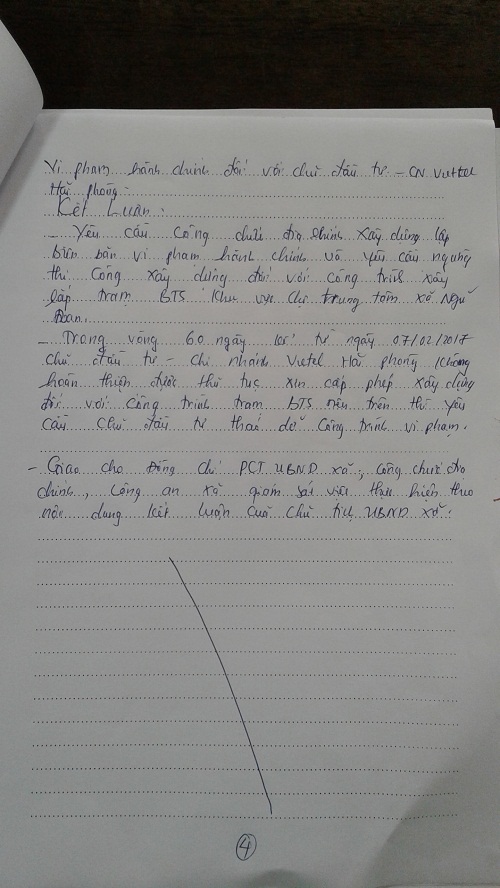 Vi phạm hành chính đối với chủ đầu tư – CN Viettel
Hải phòng.
Kết Luận:
– Yêu cầu Công chức địa chính Xây dựng lập
biên bản vi phạm hành chính và yêu cầu ngừng
thi công xây dựng đối với công trình xây
lắp trạm BTS Khu vực Chợ trung tâm xã Ngũ
Đoan.
– Trong vòng 60 ngày kể từ ngày 07/02/2017
chủ đầu tư – chi nhánh Viettel Hải phòng không
hoàn thiện được thủ tục xin cấp phép xây dựng
đối với công trình trạm BTS nêu trên thì yêu
cầu chủ đầu tư tháo dỡ công trình vi phạm.
– Giao cho Đồng chí PCT UBND xã; công chức địa
chính, công an xã giám sát việc thực hiện theo
nội dung kết luận của chủ tịch UBND xã.
4